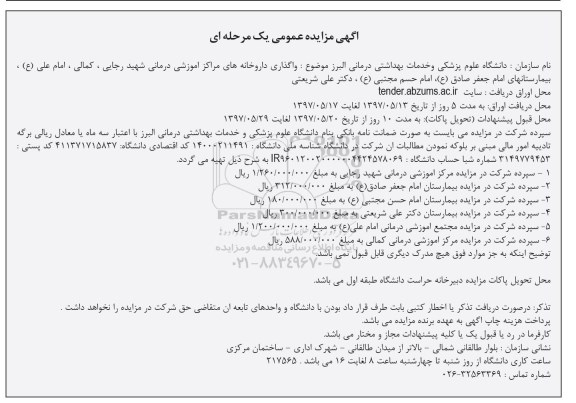 آگهی مزایده عمومی یک مرحله ای
نام سازمان : دانشگاه علوم پزشکی وخدمات بهداشتی درمانی البرز موضوع : واگذاری داروخانه های مراکز اموزشی درمانی شهید رجایی ، کمالی ، امام علی (ع) ،
بیمارستانهای امام جعفر صادق (ع)، امام حسم مجتبی (ع) ، دکتر علی شریعتی
محل اوراق دریافت : سایت tender.abzums.ac.ir
محل دریافت اوراق: به مدت ۵ روز از تاریخ ۱۳۹۷/۰۵/۱۳ لغایت ۱۳۹۷/۰۵/۱۷
محل قبول پیشنهادات (تحویل پاکات): به مدت ۱۰ روز از تاریخ ۱۳۹۷/۰۵/۲۰ لغایت ۱۳۹۷/۰۵/۲۹
سپرده شرکت در مزایده می بایست به صورت ضمانت نامه بانکی بنام دانشگاه علوم پزشکی و خدمات بهداشتی درمانی البرز با اعتبار سه ماه یا معادل ریالی برگه
تادیبه امور مالی مبنی بر بلوکه نمودن مطالبات ان شرکت در دانشگاه شناسه ملی دانشگاه : ۱۴۰۰۰۲۱۱۴۹۱ کد اقتصادی دانشگاه: ۴۱۱۳۷۱۷۱۵۸۳۷ کد پستی :
۳۱۴۹۷۷۹۴۵۳ شماره شبا حساب دانشگاه : IR۹۶۰۱۲۰۰۲۰۰۰۰۰۰۴۴۲۴۵۷۸۰۶۹ به شرح ذیل تهیه می گردد.
۱ - سپرده شرکت در مزایده مرکز اموزشی درمانی شهید رجایی به مبلغ ۱/۲۶۰/۰۰۰/۰۰۰ ریال
۲- سپرده شرکت در مزایده بیمارستان امام جعفر صادق(ع) به مبلغ ۳۱۲/۰۰۰/۰۰۰ ریال
۳- سپرده شرکت در مزایده بیمارستان امام حسن مجتبی (ع) به مبلغ ۱۸۰/۰۰۰/۰۰۰ ریال
۴- سپرده شرکت در مزایده بیمارستان دکتر علی شریعتی به مبلغ ۳۰۰/۰۰۰/۰۰۰ ریال
۵- سپرده شرکت در مزایده مجتمع اموزشی درمانی امام علی(ع) به مبلغ ۱/۲۰۰/۰۰۰/۰۰۰ ریال
۶- سپرده شرکت در مزایده مرکز اموزشی درمانی کمالی به مبلغ ۵۸۸/۰۰۰/۰۰۰ ریال
توضیح اینکه به جز موارد فوق هیچ مدرک دیگری قابل قبول نمی باشد.
۰۲۱-۸۸۳۴۹۶۷۰-۵
محل تحویل پاکات مزایده دبیرخانه حراست دانشگاه طبقه اول می باشد.
تذکر: درصورت دریافت تذکر یا اخطار کتبی بابت طرف قرار داد بودن با دانشگاه و واحدهای تابعه ان متقاضی حق شرکت در مزایده را نخواهد داشت .
پرداخت هزینه چاپ اگهی به عهده برنده مزایده می باشد.
کارفرما در رد یا قبول یک یا کلیه پیشنهادات مجاز و مختار می باشد.
نشانی سازمان : بلوار طالقانی شمالی - بالاتر از میدان طالقانی - شهرک اداری - ساختمان مرکزی
ساعت کاری دانشگاه از روز شنبه تا چهارشنبه ساعت ۸ لغایت ۱۶ می باشد . ۲۱۷۵۶۵
شماره تماس : ۳۲۵۶۳۳۶۹-۰۲۶